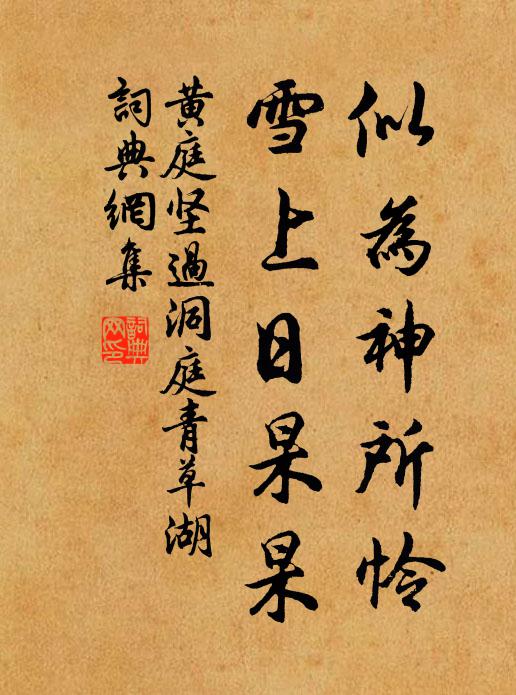 似為神所怜
雪上日杲杲
黄庭坚過洞庭青草湖
詞典網集
詞典
网印